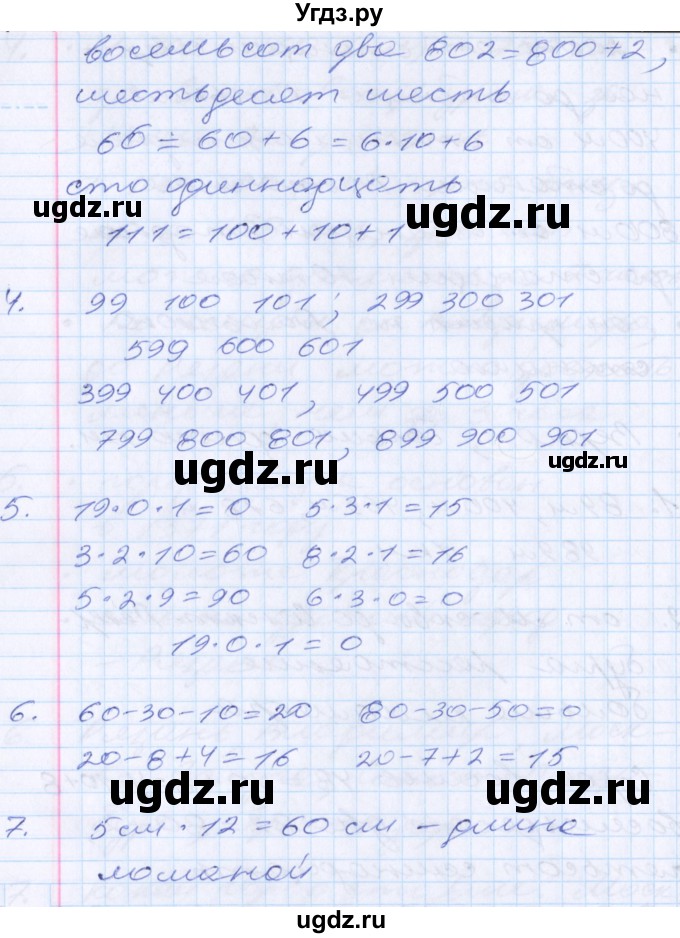 Угдз.ру
восемьсот два 802=800+2,
шестьдесят шесть
66=60+6=6·10+6
сто одиннадцать
ugdz.ru
ugdz.ru
111=100+10+1
4. 99 100 101; 299 300 301
599 600 601
399 400 401, 499 500 501
799 800 801, 899 900 901
ugdz.ru
ugdz.ru
5. 19·0·1=0 5·3·1=15
3·2·10=60 8·2·1=16
5·2·9=90 6·3·0=0
19·0·1=0
ugdz.ru
6. 60-30-10=20 80-30-50=0
20-8+4=16 20-7+2=15
ugdz.ru
ugdz.ru
7. 5см·12=60 см - длина
ломаной
ugdz.ru